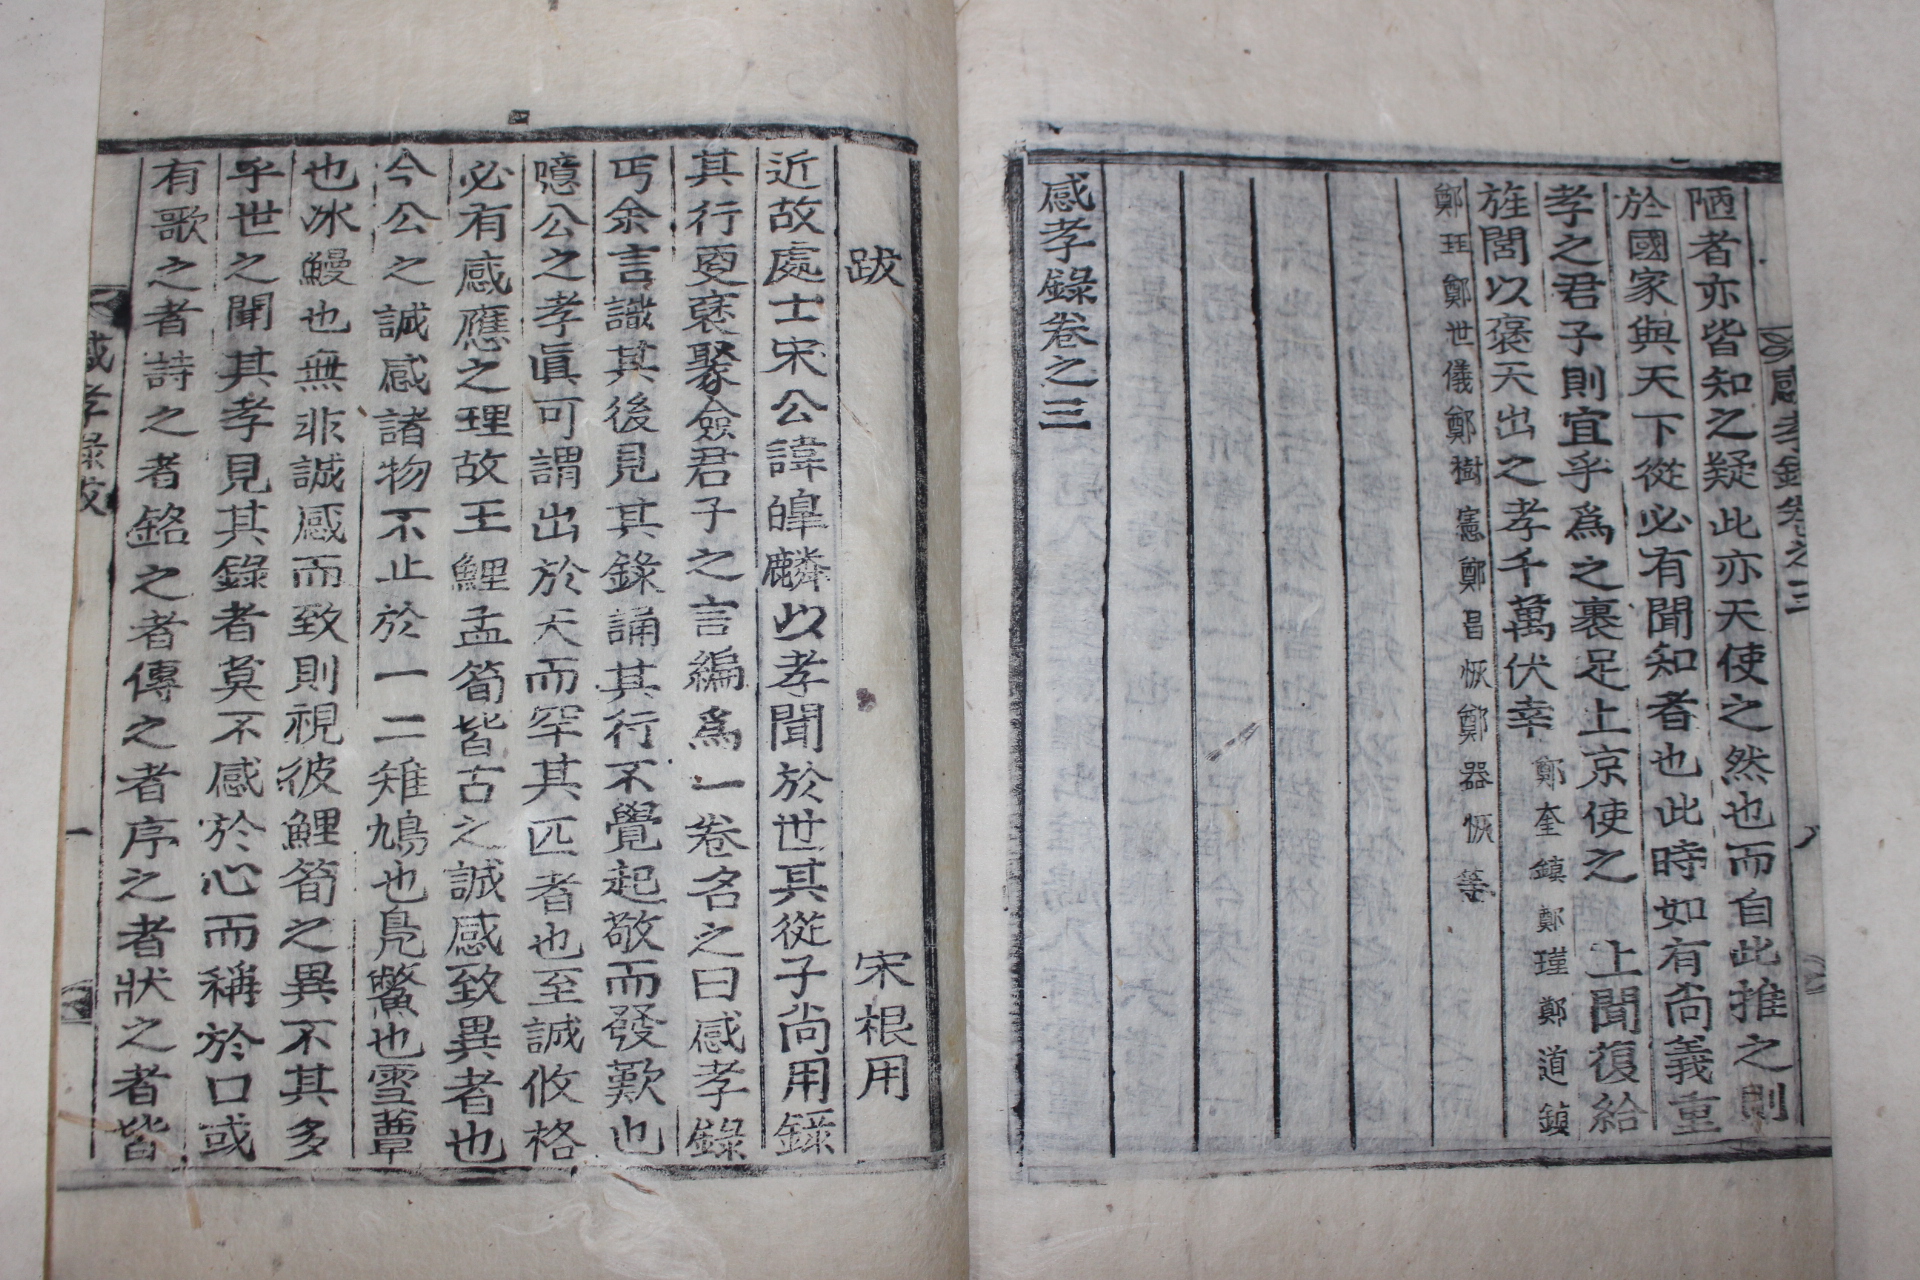 陋者亦皆知之疑此亦天使之然也而自此推之則
於國家與天下從必有聞知者也此時如有尙義重
孝之君子則宜乎爲之裹足上京使之 上聞復給
旌閭以褒天出之孝千萬伏幸 鄭奎鎭鄭瑾鄭道鎮
鄭玨鄭世儀鄭樹憲鄭昌恢鄭器恢等
感孝錄卷之三
跋 宋根用
近故處士宋公諱皡麟以孝聞於世其從子尙用錄
其行更裒聚僉君子之言編爲一卷名之曰感孝錄
丐余言識其後見其錄誦其行不覺起敬而發歎也
噫公之孝眞可謂出於天而罕其匹者也至誠攸格
必有感應之理故王鯉孟筍皆古之誠感致異者也
今公之誠感諸物不止於一二雉鳩也鳧鱉也雪蕈
也冰鰻也無非誠感而致則視彼鯉筍之異不其多
乎世之聞其孝見其錄者莫不感於心而稱於口或
有歌之者詩之者銘之者傳之者序之者狀之者皆
感孝錄跋
一